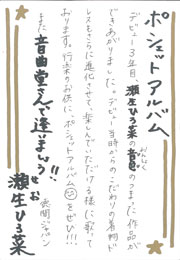 ポシェットアルバム
デビュー3年目、瀬生ひろ菜の音色のつまった作品が
おんしょく
できあがりました。デビュー当時からのこだわりの着物ド
レスをさらに進化させて、楽しんでいただける様に歌って
おります。行楽のお供に、ポシェットアルバムをぜひ!!!
また音曲堂さんで逢いましょう!!
せお
瀬生ひろ菜